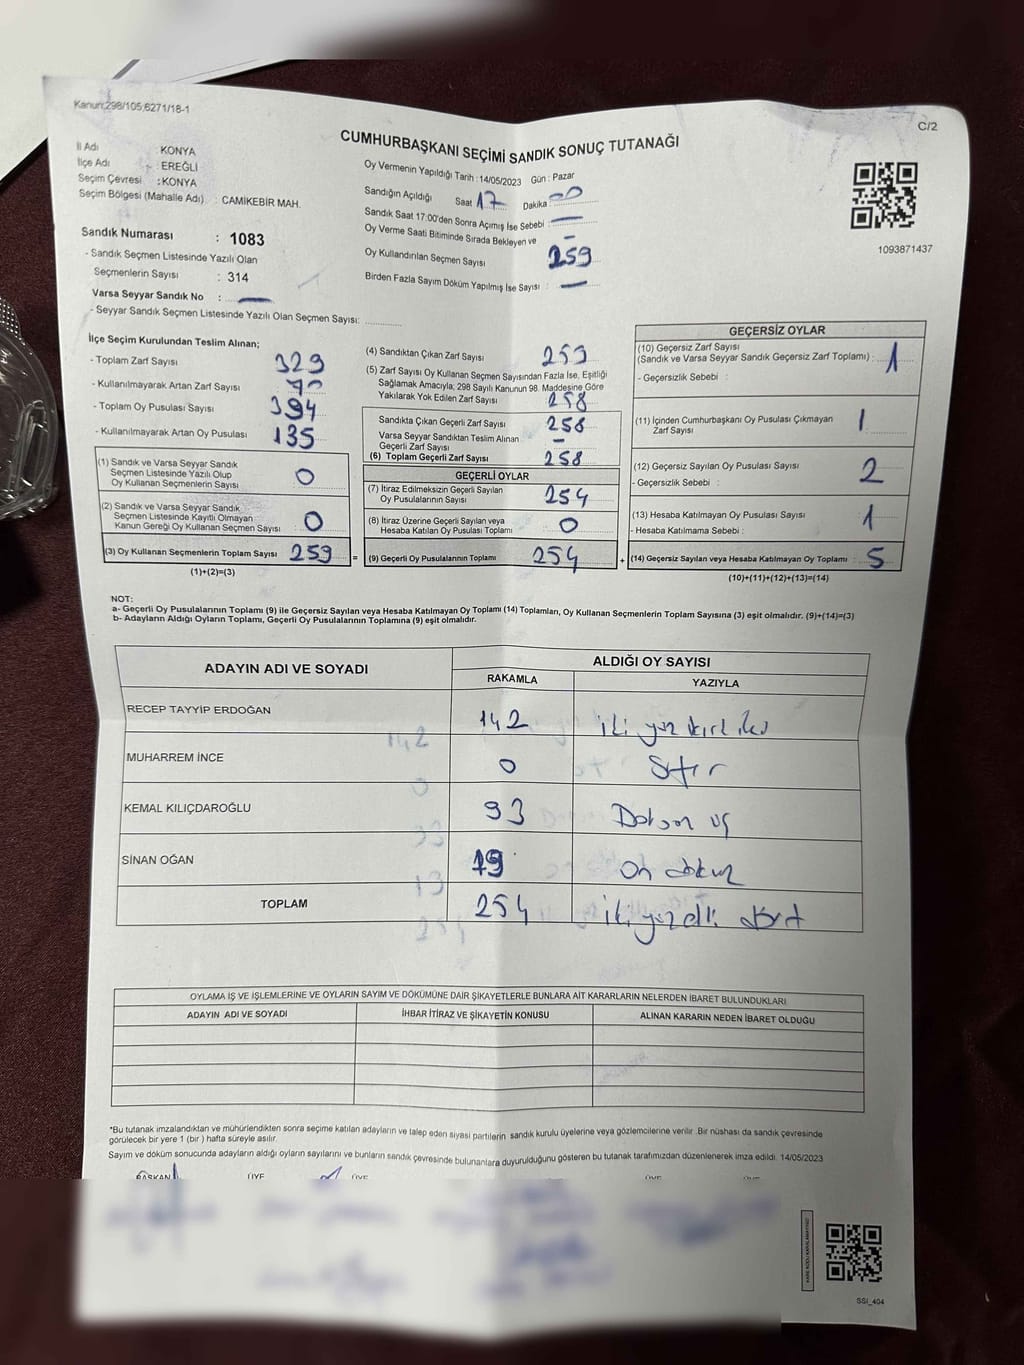 Kanun;298/105;6271/18-1
C/2
CUMHURBAŞKANI SEÇİMİ SANDIK SONUÇ TUTANAĞI
İl Adı : KONYA
İlçe Adı : EREĞLİ
Seçim Çevresi : KONYA
Seçim Bölgesi (Mahalle Adı) : CAMİKEBİR MAH.
Sandık Numarası : 1083
- Sandık Seçmen Listesinde Yazılı Olan
Seçmenlerin Sayısı : 314
Varsa Seyyar Sandık No : —
- Seyyar Sandık Seçmen Listesinde Yazılı Olan Seçmen Sayısı:
Oy Vermenin Yapıldığı Tarih : 14/05/2023 Gün : Pazar
Sandığın Açıldığı Saat 17 Dakika : 00
Sandık Saat 17:00'den Sonra Açımış İse Sebebi : —
Oy Verme Saati Bitiminde Sırada Bekleyen ve –
Oy Kullandırılan Seçmen Sayısı 259
Birden Fazla Sayım Döküm Yapılmış İse Sayısı : —
1093871437
İlçe Seçim Kurulundan Teslim Alınan;
- Toplam Zarf Sayısı 329
- Kullanılmayarak Artan Zarf Sayısı 70
- Toplam Oy Pusulası Sayısı 394
- Kullanılmayarak Artan Oy Pusulası 135
(1) Sandık ve Varsa Seyyar Sandık
Seçmen Listesinde Yazılı Olup
Oy Kullanan Seçmenlerin Sayısı 0
(2) Sandık ve Varsa Seyyar Sandık
Seçmen Listesinde Kayıtlı Olmayan
Kanun Gereği Oy Kullanan Seçmen Sayısı 0
(3) Oy Kullanan Seçmenlerin Toplam Sayısı 259 =
(1)+(2)=(3)
(4) Sandıktan Çıkan Zarf Sayısı 259
(5) Zarf Sayısı Oy Kullanan Seçmen Sayısından Fazla İse, Eşitliği
Sağlamak Amacıyla, 298 Sayılı Kanunun 98. Maddesine Göre
Yakılarak Yok Edilen Zarf Sayısı 258
Sandıkta Çıkan Geçerli Zarf Sayısı 258
Varsa Seyyar Sandıktan Teslim Alınan
Geçerli Zarf Sayısı –
(6) Toplam Geçerli Zarf Sayısı 258
GEÇERLİ OYLAR
(7) İtiraz Edilmeksizin Geçerli Sayılan
Oy Pusulalarının Sayısı 254
(8) İtiraz Üzerine Geçerli Sayılan ve
Hesaba Katılan Oy Pusulası Toplamı 0
(9) Geçerli Oy Pusulalarının Toplamı 254 +
GEÇERSİZ OYLAR
(10) Geçersiz Zarf Sayısı
(Sandık ve Varsa Seyyar Sandık Geçersiz Zarf Toplamı) : 1
- Geçersizlik Sebebi :
(11) İçinden Cumhurbaşkanı Oy Pusulası Çıkmayan
Zarf Sayısı 1
(12) Geçersiz Sayılan Oy Pusulası Sayısı 2
- Geçersizlik Sebebi :
(13) Hesaba Katılmayan Oy Pusulası Sayısı 1
- Hesaba Katılmama Sebebi :
(14) Geçersiz Sayılan veya Hesaba Katılmayan Oy Toplamı : 5
(10)+(11)+(12)+(13)=(14)
NOT:
a- Geçerli Oy Pusulalarının Toplamı (9) ile Geçersiz Sayılan veya Hesaba Katılmayan Oy Toplamı (14) Toplamları, Oy Kullanan Seçmenlerin Toplam Sayısına (3) eşit olmalıdır. (9)+(14)=(3)
b- Adayların Aldığı Oyların Toplamı, Geçerli Oy Pusulalarının Toplamına (9) eşit olmalıdır.
ADAYIN ADI VE SOYADI ALDIĞI OY SAYISI
RAKAMLA YAZIYLA
RECEP TAYYİP ERDOĞAN 142 iki yüz kırk iki
MUHARREM İNCE 0 Sıfır
KEMAL KILIÇDAROĞLU 93 Doksan üç
SİNAN OĞAN 19 On dokuz
TOPLAM 254 iki yüz elli dört
OYLAMA İŞ VE İŞLEMLERİNE VE OYLARIN SAYIM VE DÖKÜMÜNE DAİR ŞİKAYETLERLE BUNLARA AİT KARARLARIN NELERDEN İBARET BULUNDUKLARI
ADAYIN ADI VE SOYADI İHBAR İTİRAZ VE ŞİKAYETİN KONUSU ALINAN KARARIN NEDEN İBARET OLDUĞU
*Bu tutanak imzalandıktan ve mühürlendikten sonra seçime katılan adayların ve talep eden siyasi partilerin sandık kurulu üyelerine veya gözlemcilerine verilir .Bir nüshası da sandık çevresinde
görülecek bir yere 1 (bir ) hafta süreyle asılır.
Sayım ve döküm sonucunda adayların aldığı oyların sayılarını ve bunların sandık çevresinde bulunanlara duyurulduğunu gösteren bu tutanak tarafımızdan düzenlenerek imza edildi. 14/05/2023
BAŞKAN ÜYE ÜYE ÜYE ÜYE
SSI_404